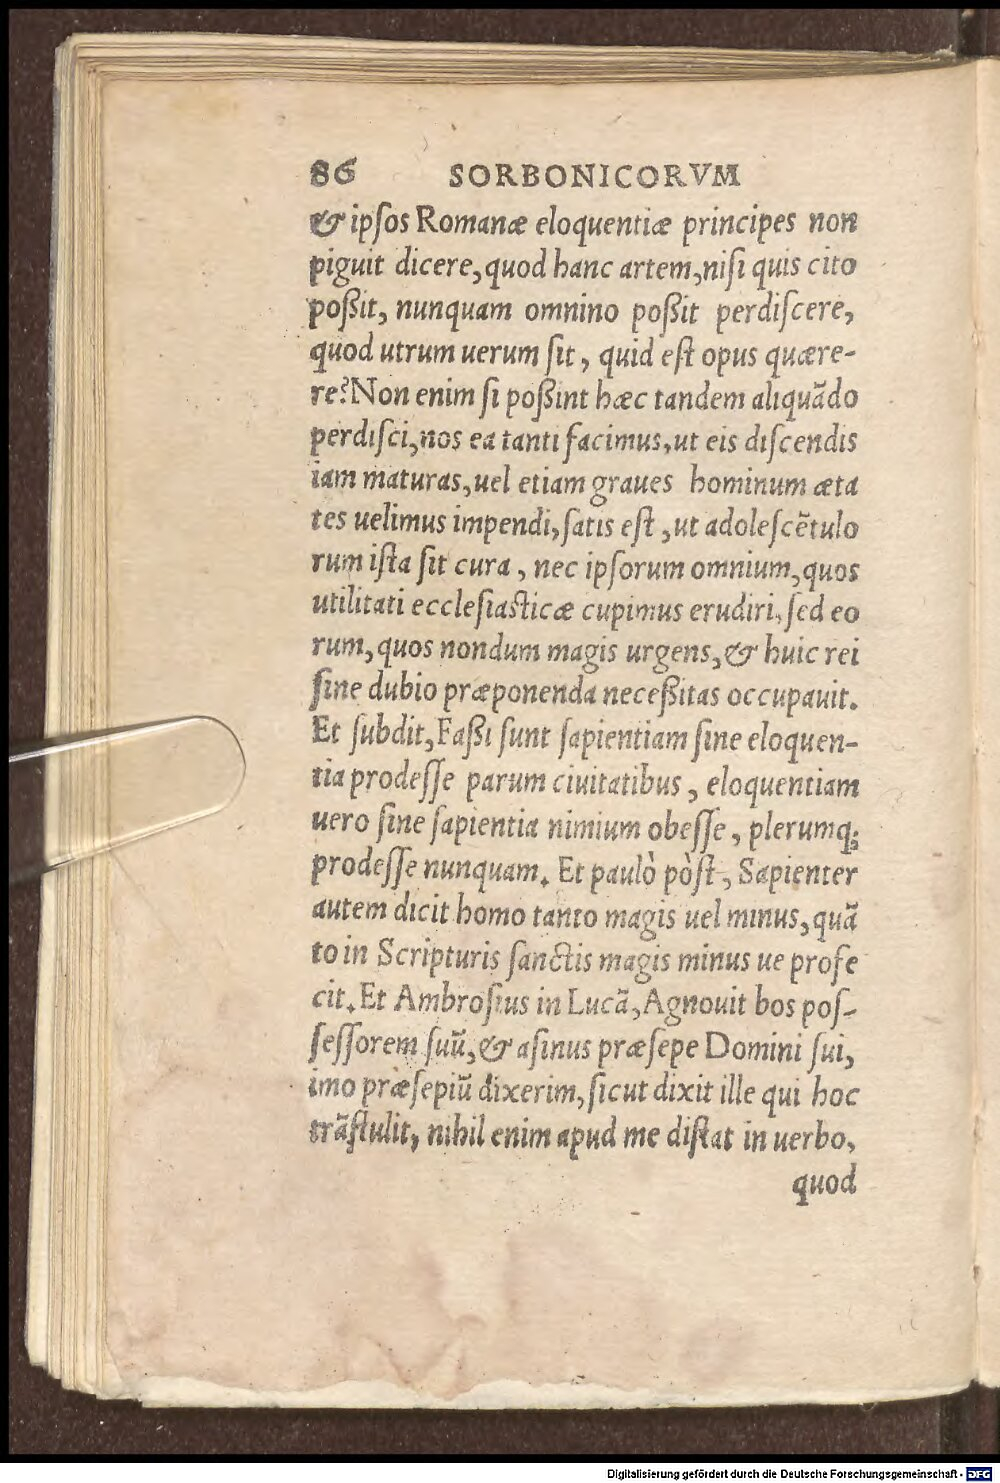 86 SORBONICORVM
& ipſos Romanæ eloquentiæ principes non
piguit dicere, quod hanc artem, niſi quis cito
poßit, nunquam omnino poßit perdiſcere,
quod utrum uerum ſit, quid eſt opus quære-
re? Non enim ſi poßint hæc tandem aliquãdo
perdiſci, nos ea tanti facimus, ut eis diſcendis
iam maturas, uel etiam graues hominum æta
tes uelimus impendi, ſatis eſt, ut adoleſcẽtulo
rum iſta ſit cura, nec ipſorum omnium, quos
utilitati eccleſiaſticæ cupimus erudiri, ſed eo
rum, quos nondum magis urgens, & huic rei
ſine dubio præponenda neceßitas occupauit.
Et ſubdit, Faßi ſunt ſapientiam ſine eloquen-
tia prodeſſe parum ciuitatibus, eloquentiam
uero ſine ſapientia nimium obeſſe, plerumq;
prodeſſe nunquam. Et paulò pòſt, Sapienter
autem dicit homo tanto magis uel minus, quã
to in Scripturis ſanctis magis minus ue profe
cit. Et Ambroſius in Lucã, Agnouit bos poſ-
ſeſſorem ſuũ, & aſinus præſepe Domini ſui,
imo præſepiũ dixerim, ſicut dixit ille qui hoc
trãſtulit, nihil enim apud me diſtat in uerbo,
quod
Digitalisierung gefördert durch die Deutsche Forschungsgemeinschaft - DFG